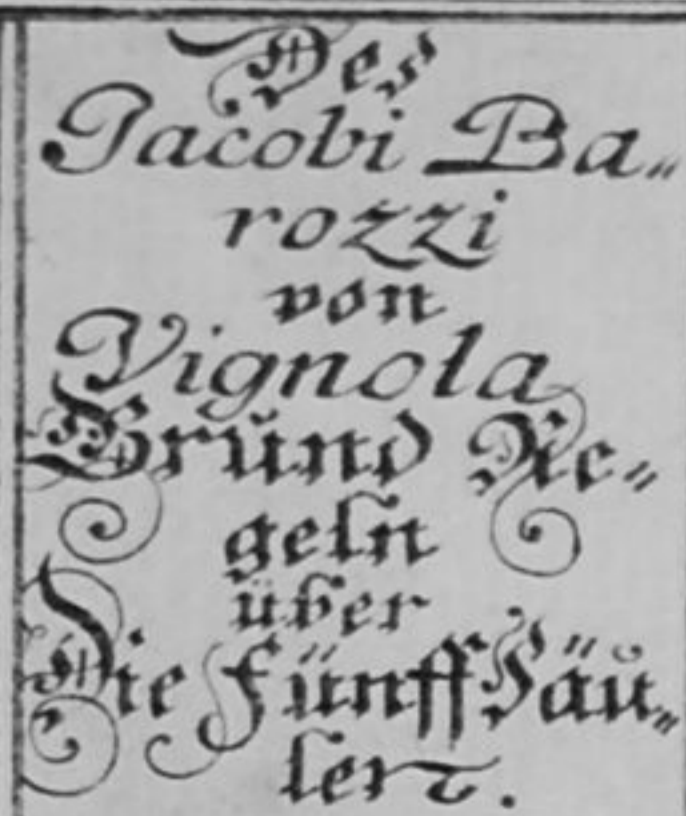 Des
Jacobi Ba„
rozzi
von
Vignola
Grŭnd Re„
geln
über
Die Fünff Säŭ„
len.